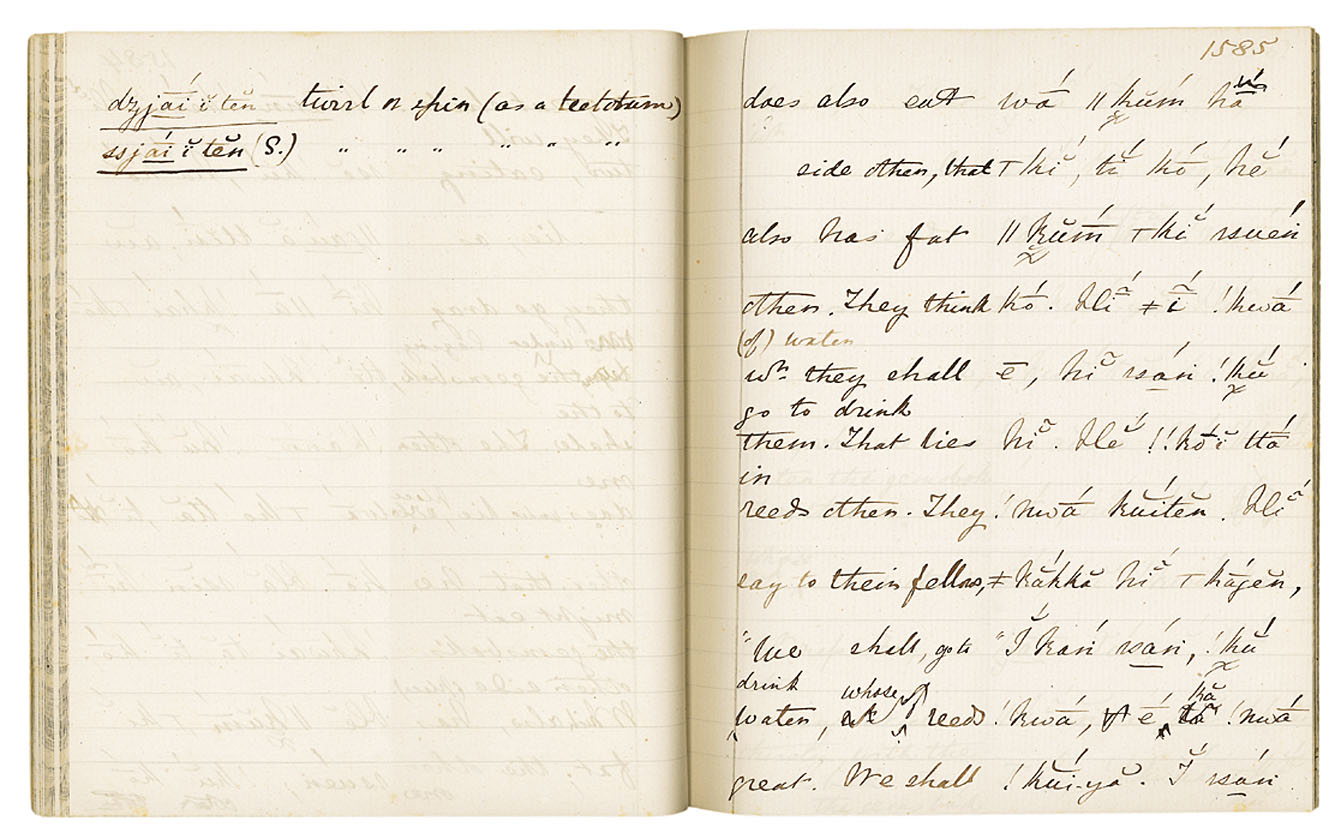 dzyjáí ĭ tĕn twirl or spin (as a teetotum)
ssjáí ĭ tĕn (S.) " " " " " "
1585
does also eat wā́ ǁkŭḿ hā́
side other, that ǀkĭ́, tĭ́ kō̂, hĕ́
also has fat ǁkŭḿ ǀkĭ́ ssuéń
other. They think kō̂. Hĭ́ ǂī̃́ !kwā́
(of) water
wh. they shall ē, hĭ ssáń !kŭ́
go to drink
them. That lies hĭ. Hĕ́ !kṓĭ ttā́
in
reeds other. They !nwā́ kŭ́ĭtĕn. Hĭ́
say to their fellows, ǂkắkkă hĭ́ ǀkā́gĕn,
"We shall, go to "Ĭ́ kań ssáń, !kŭ́
drink whose kă
water, reeds !kwā́, é, !nwā́
great. We shall !kŭ́ĭ-yă. Ĭ́ ssáń